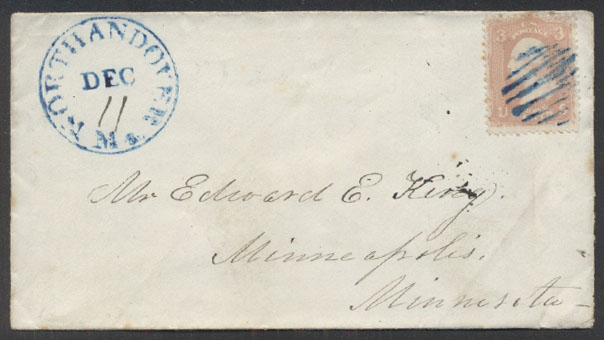 NORTH ANDOVER Ms
DEC
11
3 3
U S
Mr Edward E. King.
Minneapolis.
Minnesota